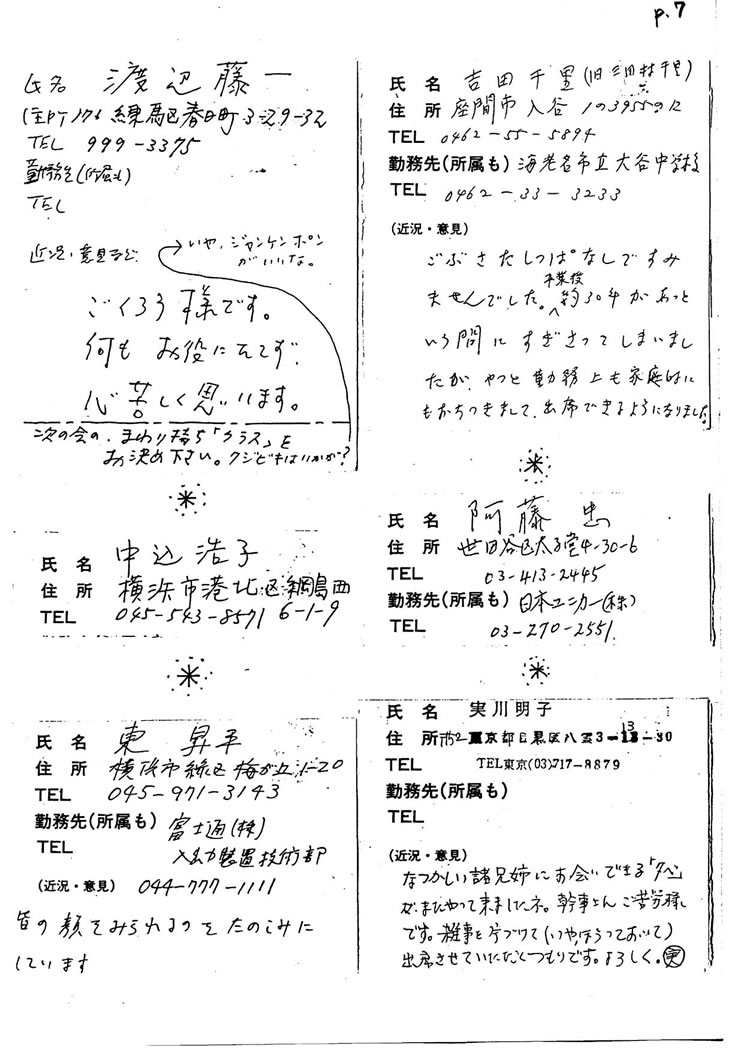 p.7
氏名 渡辺藤一
(住所) 176 練馬区春日町3-29-32
TEL 999-3375
勤務先(所属も)
TEL
近況・意見など
→いや、ジャンケンポン
がいいな。
ごくろう様です。
何も お役にたてず、
心苦しく思います。
次の会の、まわり持ち「クラス」を
お決め下さい。クジビキはいかが?
氏 名 中込浩子
住 所 横浜市港北区綱島西
6-1-9
TEL 045-543-8571
氏 名 東 昇平
住 所 横浜市緑区梅が丘1-20
TEL 045-971-3143
勤務先(所属も) 富士通(株)
TEL 入出力装置技術部
(近況・意見) 044-777-1111
皆の顔をみられるのをたのしみに
しています
氏 名 吉田千里(旧三田村千里)
住 所 座間市入谷1の3955の12
TEL 0462-55-5894
勤務先(所属も) 海老名市立大谷中学校
TEL 0462-33-3233
(近況・意見)
ごぶさたしっぱなしですみ
ませんでした。卒業後約30年があっと
いう間にすぎさってしまいまし
たが、やっと勤務上も家庭的に
もおちつきまして、出席できるようになりました。
氏 名 阿藤 忠
住 所 世田谷区太子堂4-30-6
TEL 03-413-2445
勤務先(所属も) 日本ユニカー(株)
TEL 03-270-2551
氏 名 実川明子
住 所 東京都目黒区八雲3-13-30
TEL TEL東京(03)717-8879
勤務先(所属も)
TEL
(近況・意見)
なつかしい諸兄姉にお会いできる「夕べ」
が、またやって来ましたネ。幹事さん ご苦労様
です。雑事を片づけて(いや、ほうっておいて)
出席させていただくつもりです。よろしく。実